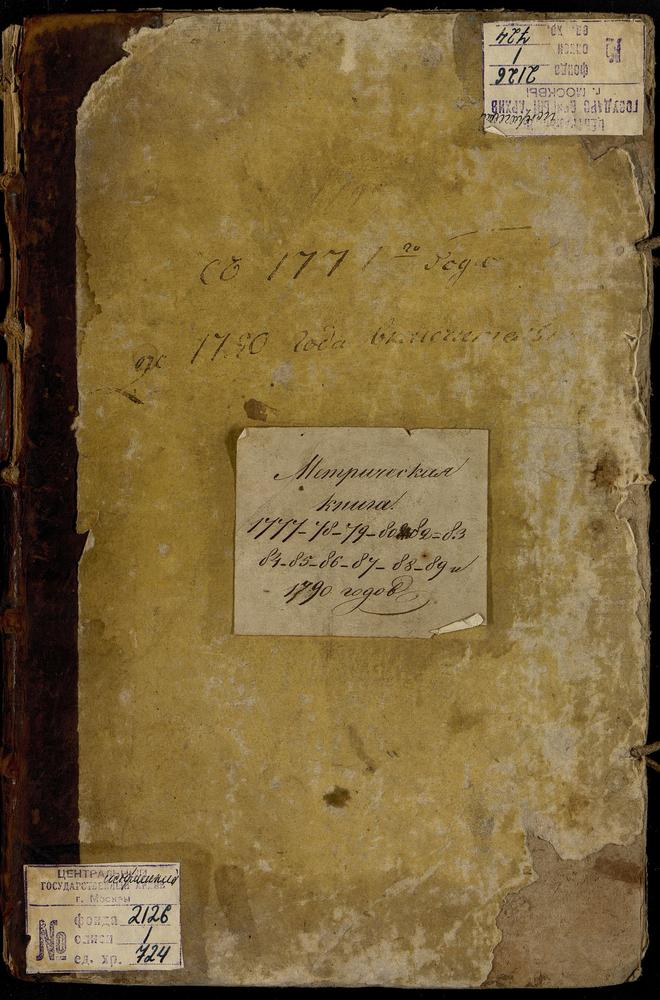 ЦЕНТРАЛЬНЫЙ
ГОСУДАРСТВЕННЫЙ АРХИВ
г. МОСКВЫ
фонда 2126
описи 1
ед. хр. 724
№
съ 1771 го Года
до 1790 года включительно
Метрическая
книга
1777-78-79-80 82=83
84-85-86-87-88-89 и
1790 годов
ЦЕНТРАЛЬНЫЙ
ГОСУДАРСТВЕННЫЙ АРХИВ
г. Москвы
№
фонда 2126
описи 1
ед. хр. 724